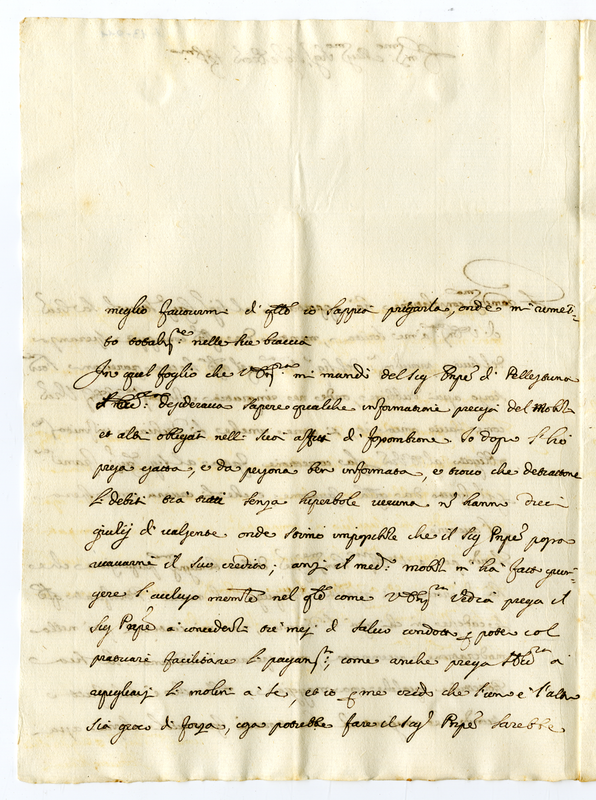 meglio favorirmi di qto io sappia pregarla, onde mi rimet-
to totalmte nelle sue braccia
In quel foglio che V S Illma mi mandò del Sig Pnpe di Pellestrina
desiderava sapere qualche informatione precisa del Mobili
et altri obligati nelli suoi affitti di Io dopo l'hò
presa esatta, e da persona ben informata, e trovo che detrattone
li debiti trà tutti senza hiperbole veruna nõ hanno dieci
giulij di valsente onde stimo impossibile che il Sig Pnpe possa
ricavarne il suo credito; anzi il med: Mobili m'hà fatto giun-
gere l'acclusa memle nel qle come V S Illma vedrà prega il
Sig Pnpe à concederli trè mesi di salvo condotto p poter col
procurare facilitare li pagamti, come anche prega à
ripigliarsi li molini à se, et io p me credo che l'uno e l'altro
sia gioco di forza, cosa potrebbe fare il Sig Pnpe sarebbe